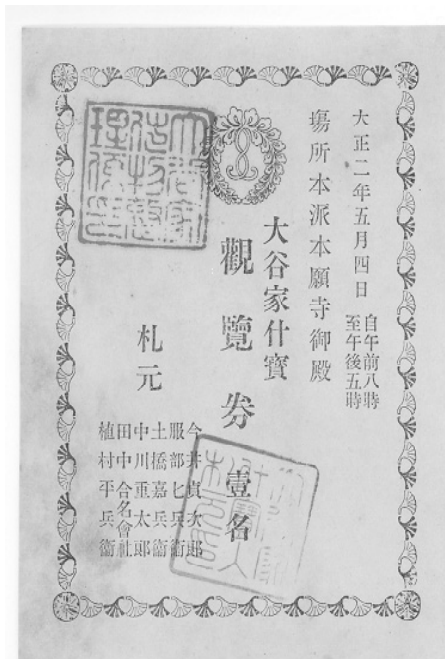 大正二年五月四日
自午前八時
至午後五時
塲所本派本願寺御殿
大谷家什寳
觀覽劵壹名
札元
今井貞次郎
服部七兵衞
土橋嘉兵衞
中川重太郎
田中合名會社
植村平兵衞